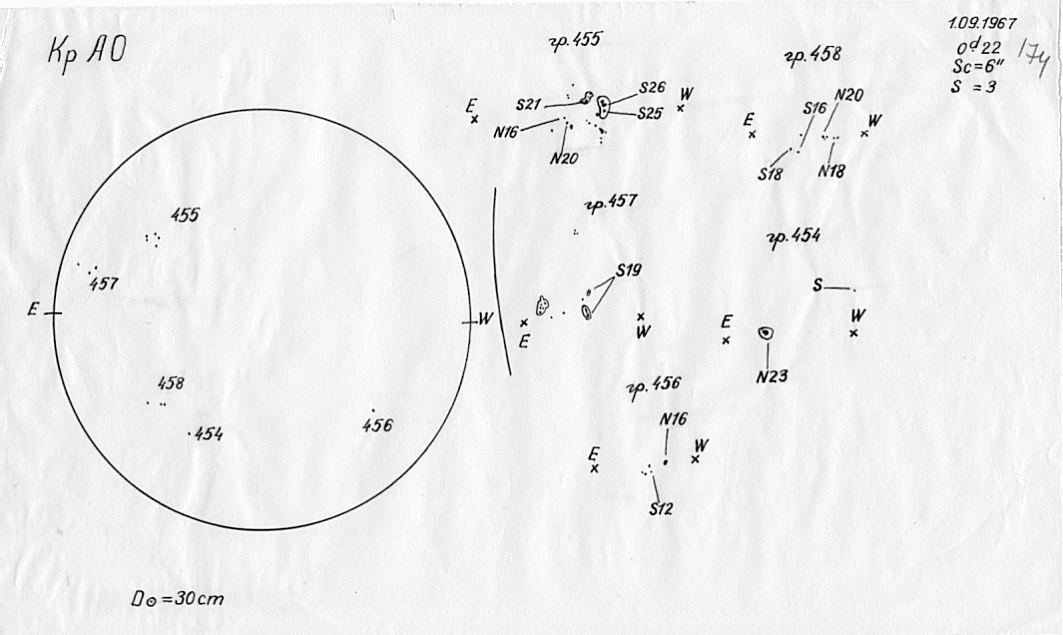 Кр АО
1.09.1967
0ᵈ22
Sc=6"
S = 3
174
гр.455
E
S21
S26
S25
W
N16
N20
гр.458
E
S16
N20
W
S18
N18
гр.457
S19
E
W
гр.454
S
E
W
N23
гр.456
N16
E
W
S12
455
457
E
W
458
454
456
D⊙=30cm